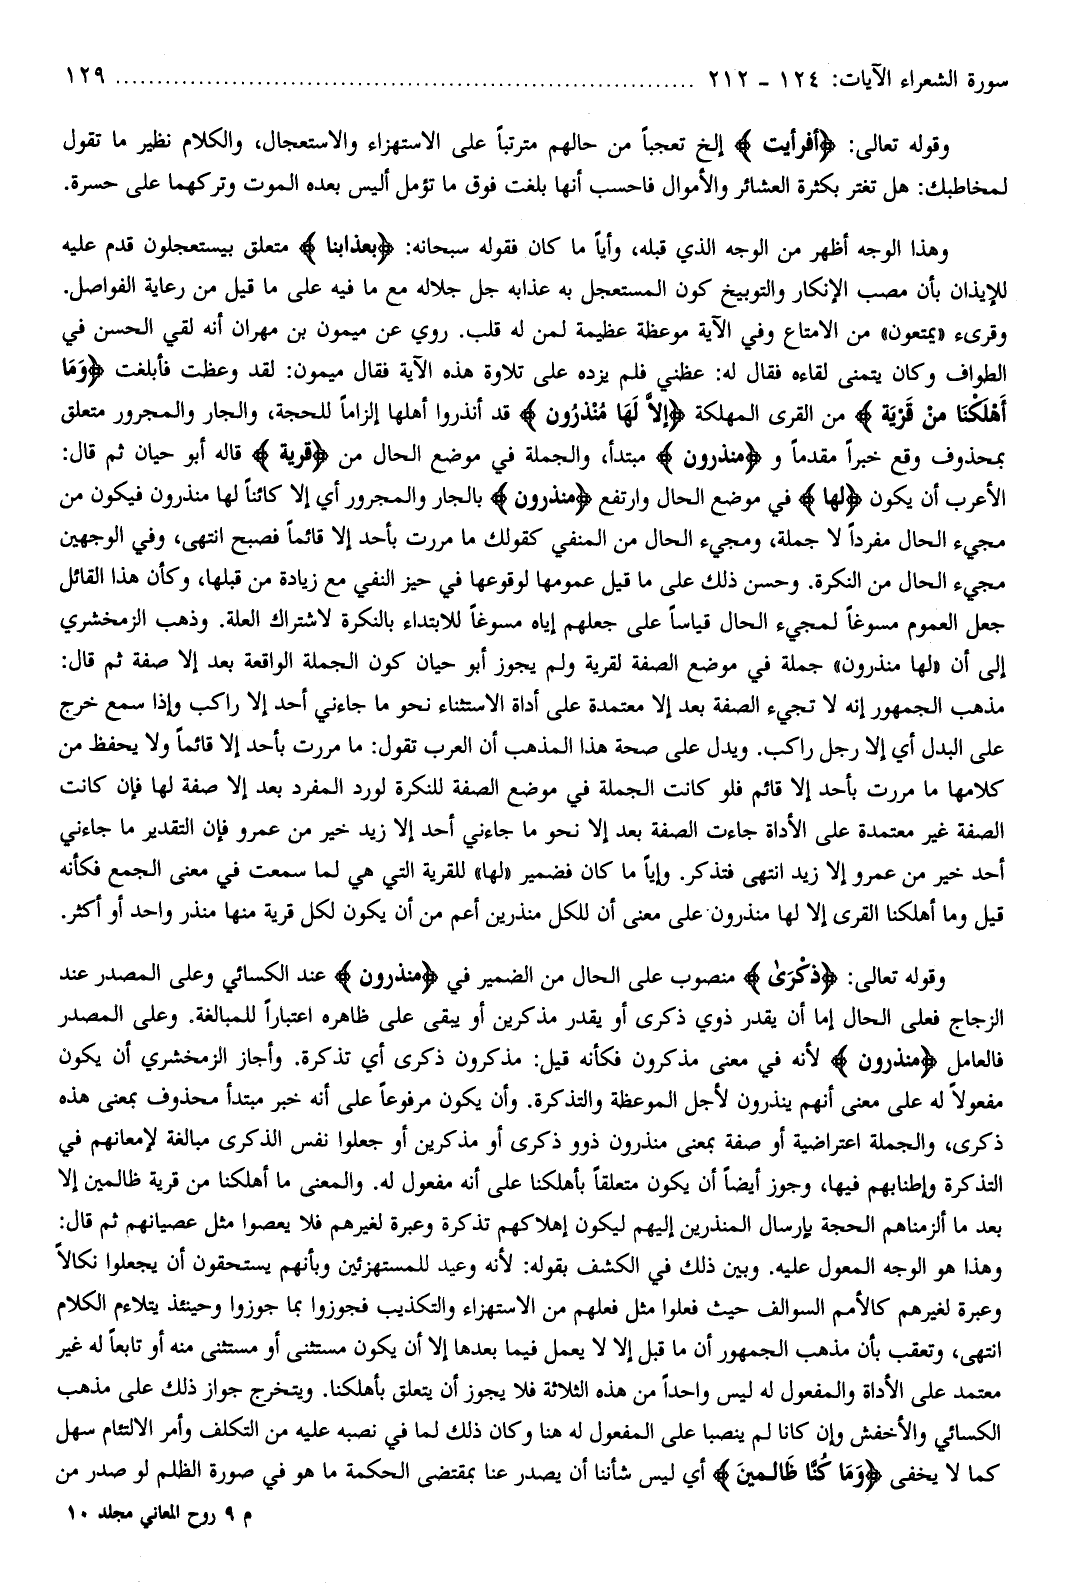 سورة الشعراء الآيات: ١٢٤ - ٢١٢ ........................................................................ ١٢٩
وقوله تعالى: ﴿أفرأيت﴾ إلخ تعجباً من حالهم مترتباً على الاستهزاء والاستعجال، والكلام نظير ما تقول
لمخاطبك: هل تغتر بكثرة العشائر والأموال فاحسب أنها بلغت فوق ما تؤمل أليس بعده الموت وتركهما على حسرة.
وهذا الوجه أظهر من الوجه الذي قبله، وأياً ما كان فقوله سبحانه: ﴿بعذابنا﴾ متعلق بيستعجلون قدم عليه
للإيذان بأن مصب الإنكار والتوبيخ كون المستعجل به عذابه جل جلاله مع ما فيه على ما قيل من رعاية الفواصل.
وقرىء «يمتعون» من الامتاع وفي الآية موعظة عظيمة لمن له قلب. روي عن ميمون بن مهران أنه لقي الحسن في
الطواف وكان يتمنى لقاءه فقال له: عظني فلم يزده على تلاوة هذه الآية فقال ميمون: لقد وعظت فأبلغت ﴿وَمَا
أَهْلَكْنَا منْ قَرْيَة﴾ من القرى المهلكة ﴿إلاَّ لَهَا مُنْذرُون﴾ قد أنذروا أهلها إلزاماً للحجة، والجار والمجرور متعلق
بمحذوف وقع خبراً مقدماً و ﴿منذرون﴾ مبتدأ، والجملة في موضع الحال من ﴿قرية﴾ قاله أبو حيان ثم قال:
الأعرب أن يكون ﴿لها﴾ في موضع الحال وارتفع ﴿منذرون﴾ بالجار والمجرور أي إلا كائناً لها منذرون فيكون من
مجيء الحال مفرداً لا جملة، ومجيء الحال من المنفي كقولك ما مررت بأحد إلا قائماً فصبح انتهى، وفي الوجهين
مجيء الحال من النكرة. وحسن ذلك على ما قيل عمومها لوقوعها في حيز النفي مع زيادة من قبلها، وكأن هذا القائل
جعل العموم مسوغاً لمجيء الحال قياساً على جعلهم إياه مسوغاً للابتداء بالنكرة لاشتراك العلة. وذهب الزمخشري
إلى أن «لها منذرون» جملة في موضع الصفة لقرية ولم يجوز أبو حيان كون الجملة الواقعة بعد إلا صفة ثم قال:
مذهب الجمهور إنه لا تجيء الصفة بعد إلا معتمدة على أداة الاستثناء نحو ما جاءني أحد إلا راكب وإذا سمع خرج
على البدل أي إلا رجل راكب. ويدل على صحة هذا المذهب أن العرب تقول: ما مررت بأحد إلا قائماً ولا يحفظ من
كلامها ما مررت بأحد إلا قائم فلو كانت الجملة في موضع الصفة للنكرة لورد المفرد بعد إلا صفة لها فإن كانت
الصفة غير معتمدة على الأداة جاءت الصفة بعد إلا نحو ما جاءني أحد إلا زيد خير من عمرو فإن التقدير ما جاءني
أحد خير من عمرو إلا زيد انتهى فتذكر. وإياً ما كان فضمير «لها» للقرية التي هي لما سمعت في معنى الجمع فكأنه
قيل وما أهلكنا القرى إلا لها منذرون على معنى أن للكل منذرين أعم من أن يكون لكل قرية منها منذر واحد أو أكثر.
وقوله تعالى: ﴿ذكْرَىٰ﴾ منصوب على الحال من الضمير في ﴿منذرون﴾ عند الكسائي وعلى المصدر عند
الزجاج فعلى الحال إما أن يقدر ذوي ذكرى أو يقدر مذكرين أو يبقى على ظاهره اعتباراً للمبالغة. وعلى المصدر
فالعامل ﴿منذرون﴾ لأنه في معنى مذكرون فكأنه قيل: مذكرون ذكرى أي تذكرة. وأجاز الزمخشري أن يكون
مفعولاً له على معنى أنهم ينذرون لأجل الموعظة والتذكرة. وأن يكون مرفوعاً على أنه خبر مبتدأ محذوف بمعنى هذه
ذكرى، والجملة اعتراضية أو صفة بمعنى منذرون ذوو ذكرى أو مذكرين أو جعلوا نفس الذكرى مبالغة لإمعانهم في
التذكرة وإطنابهم فيها، وجوز أيضاً أن يكون متعلقاً بأهلكنا على أنه مفعول له. والمعنى ما أهلكنا من قرية ظالمين إلا
بعد ما ألزمناهم الحجة بإرسال المنذرين إليهم ليكون إهلاكهم تذكرة وعبرة لغيرهم فلا يعصوا مثل عصيانهم ثم قال:
وهذا هو الوجه المعول عليه. وبين ذلك في الكشف بقوله: لأنه وعيد للمستهزئين وبأنهم يستحقون أن يجعلوا نكالاً
وعبرة لغيرهم كالأمم السوالف حيث فعلوا مثل فعلهم من الاستهزاء والتكذيب فجوزوا بما جوزوا وحينئذ يتلاءم الكلام
انتهى، وتعقب بأن مذهب الجمهور أن ما قبل إلا لا يعمل فيما بعدها إلا أن يكون مستثنى أو مستثنى منه أو تابعاً له غير
معتمد على الأداة والمفعول له ليس واحداً من هذه الثلاثة فلا يجوز أن يتعلق بأهلكنا. ويتخرج جواز ذلك على مذهب
الكسائي والأخفش وإن كانا لم ينصبا على المفعول له هنا وكان ذلك لما في نصبه عليه من التكلف وأمر الالتئام سهل
كما لا يخفى ﴿وَمَا كُنَّا ظَالمينَ﴾ أي ليس شأننا أن يصدر عنا بمقتضى الحكمة ما هو في صورة الظلم لو صدر من
م ٩ روح المعاني مجلد ١٠